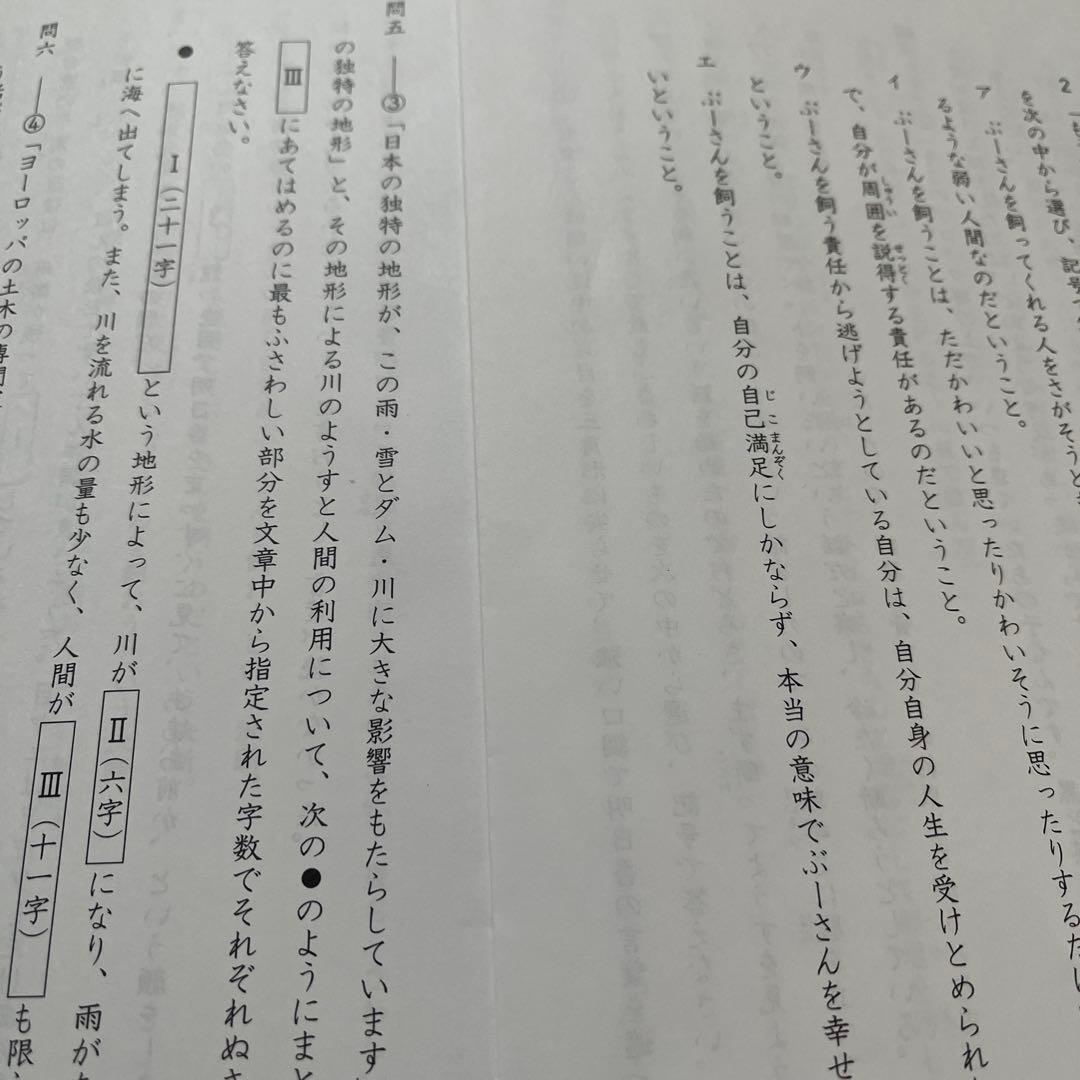 を次の中から選び、記号で
ア ぶーさんを飼ってくれる人をさがそうと
るような弱い人間なのだということ。
イ ぶーさんを飼うことは、ただかわいいと思ったりかわいそうに思ったりするだけ
で、自分が周囲を説得する責任があるのだということ。
ウ ぶーさんを飼う責任から逃げようとしている自分は、自分自身の人生を受けとめられ
ということ。
エ ぶーさんを飼うことは、自分の自己満足にしかならず、本当の意味でぶーさんを幸せ
いということ。
問五 ――③「日本の独特の地形が、この雨・雪とダム・川に大きな影響をもたらしています
の独特の地形」と、その地形による川のようすと人間の利用について、次の●のようにまと
Ⅲ にあてはめるのに最もふさわしい部分を文章中から指定された字数でそれぞれぬき
答えなさい。
● Ⅰ(二十一字) という地形によって、川が Ⅱ(六字) になり、雨が
に海へ出てしまう。また、川を流れる水の量も少なく、人間が Ⅲ(十一字) も限
問六 ――④「ヨーロッパの土木の専門